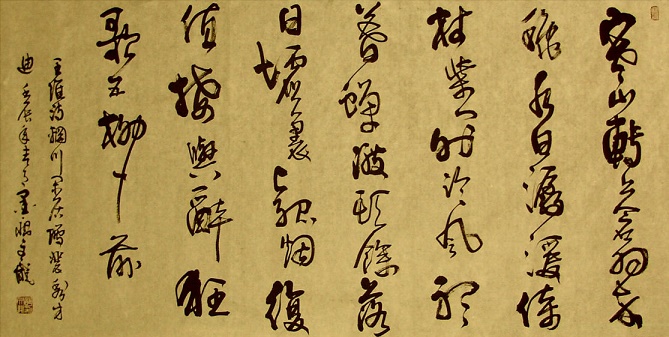 寒山轉蒼翠
秋水日潺湲倚
杖柴門外臨風聽
暮蟬渡頭餘落
日墟里上孤烟復
值接輿醉狂
歌五柳前
王維詩輞川閑居贈裴秀才
迪 壬辰年